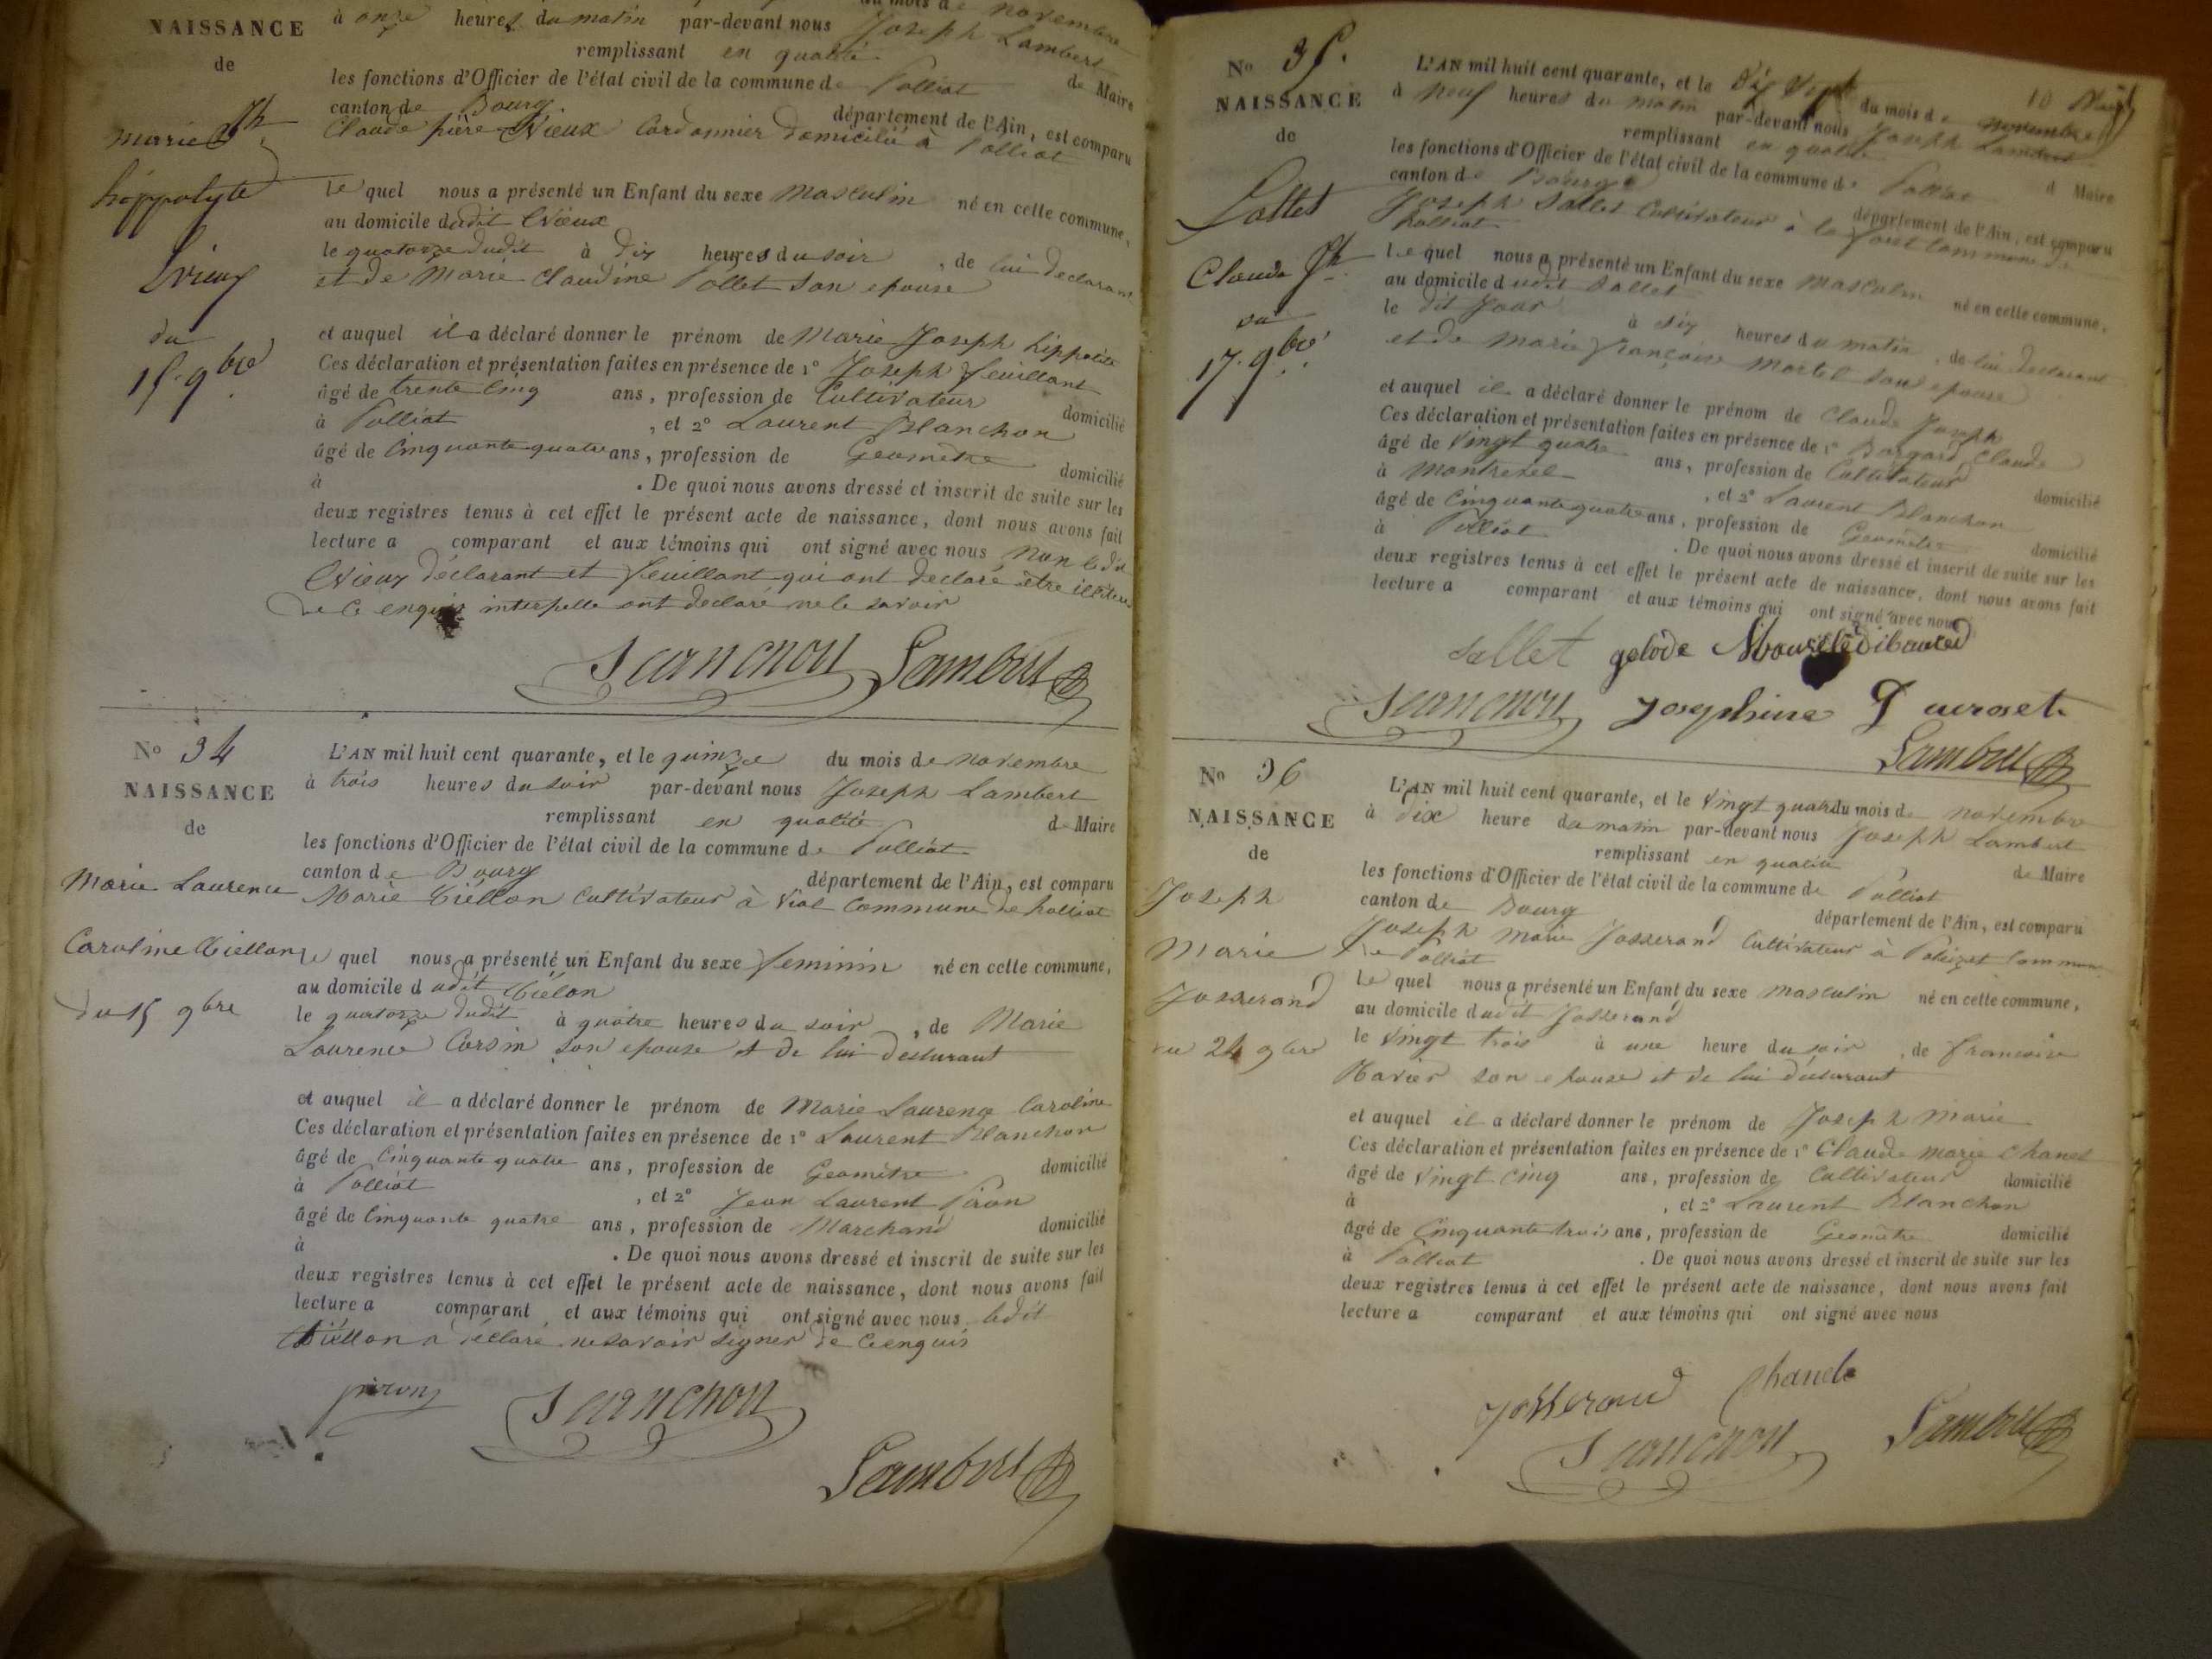 NAISSANCE
de
Marie Jh
hippolyte
du
15. 9bre
du mois de novembre
à onze heures du matin par-devant nous Joseph Lambert
remplissant en qualité de Maire
les fonctions d'Officier de l'état civil de la commune de Polliat
canton de Bourg département de l'Ain, est comparu
Claude pierre Cordonnier domicilié à Polliat
le quel nous a présenté un Enfant du sexe masculin né en cette commune,
au domicile dudit
le quatorze dudit à dix heures du soir, de lui declarant
et de Marie Claudine Pollet son epouse
et auquel il a déclaré donner le prénom de Marie Joseph hippolite
Ces déclaration et présentation faites en présence de 1° Joseph feuillant
âgé de trente cinq ans, profession de Cultivateur domicilié
à Polliat, et 2° Laurent Blanchon
âgé de Cinquante quatre ans, profession de Geomètre domicilié
à . De quoi nous avons dressé et inscrit de suite sur les
deux registres tenus à cet effet le présent acte de naissance, dont nous avons fait
lecture a comparant et aux témoins qui ont signé avec nous non ledit
déclarant et feuillant qui ont declaré être
de ce enquis interpellé ont declaré ne le savoir
Blanchon Lambert
No 34
NAISSANCE
de
Marie Laurence
Caroline
du 15 9bre
L'AN mil huit cent quarante, et le quinze du mois de novembre
à trois heures du soir par-devant nous Joseph Lambert
remplissant en qualité de Maire
les fonctions d'Officier de l'état civil de la commune de Polliat
canton de Bourg département de l'Ain, est comparu
Marie cultivateur à Vial Commune de Polliat
le quel nous a présenté un Enfant du sexe feminin né en cette commune,
au domicile dudit
le quatorze dudit à quatre heures du soir, de Marie
Laurence Corsin son epouse et de lui declarant
et auquel il a déclaré donner le prénom de Marie Laurence Caroline
Ces déclaration et présentation faites en présence de 1° Laurent Blanchon
âgé de Cinquante quatre ans, profession de Geomètre domicilié
à Polliat, et 2° Jean Laurent Piron
âgé de Cinquante quatre ans, profession de Marchand domicilié
à . De quoi nous avons dressé et inscrit de suite sur les
deux registres tenus à cet effet le présent acte de naissance, dont nous avons fait
lecture a comparant et aux témoins qui ont signé avec nous ledit
a déclaré ne savoir signer de ce enquis
piron Blanchon
Lambert
No 35.
NAISSANCE
de
Sallet
Claude Jh
du
17. 9bre
L'AN mil huit cent quarante, et le Dix Sept du mois de novembre
à neuf heures du matin par-devant nous Joseph Lambert
remplissant en qualité de Maire
les fonctions d'Officier de l'état civil de la commune de Polliat
canton de Bourg département de l'Ain, est comparu
Joseph Sallet Cultivateur à la foret Commune de
Polliat
Le quel nous a présenté un Enfant du sexe masculin né en cette commune,
au domicile dudit Sallet
le dit jour à six heures du matin, de lui declarant
et de Marie françoise Martel son epouse
et auquel il a déclaré donner le prénom de Claude Joseph
Ces déclaration et présentation faites en présence de 1° Claude
âgé de vingt quatre ans, profession de Cultivateur domicilié
à Montrevel, et 2° Laurent Blanchon
âgé de Cinquante quatre ans, profession de Geomètre domicilié
à Polliat . De quoi nous avons dressé et inscrit de suite sur les
deux registres tenus à cet effet le présent acte de naissance, dont nous avons fait
lecture a comparant et aux témoins qui ont signé avec nous
Sallet
Blanchon Josephine
Lambert
No 36
NAISSANCE
de
Joseph
Marie
Josserand
du 24 9bre
L'AN mil huit cent quarante, et le vingt quatre du mois de novembre
à dix heure du matin par-devant nous Joseph Lambert
remplissant en qualité de Maire
les fonctions d'Officier de l'état civil de la commune de Polliat
canton de Bourg département de l'Ain, est comparu
Joseph Marie Josserand Cultivateur à Commune
de Polliat
Le quel nous a présenté un Enfant du sexe masculin né en cette commune,
au domicile dudit Josserand
le vingt trois à une heure du soir, de francoise
son epouse et de lui declarant
et auquel il a déclaré donner le prénom de Joseph Marie
Ces déclaration et présentation faites en présence de 1° Claude Marie Chanel
âgé de vingt cinq ans, profession de Cultivateur domicilié
à , et 2° Laurent Blanchon
âgé de Cinquante trois ans, profession de Geomètre domicilié
à Polliat . De quoi nous avons dressé et inscrit de suite sur les
deux registres tenus à cet effet le présent acte de naissance, dont nous avons fait
lecture a comparant et aux témoins qui ont signé avec nous
Josserand Chanel
Blanchon Lambert